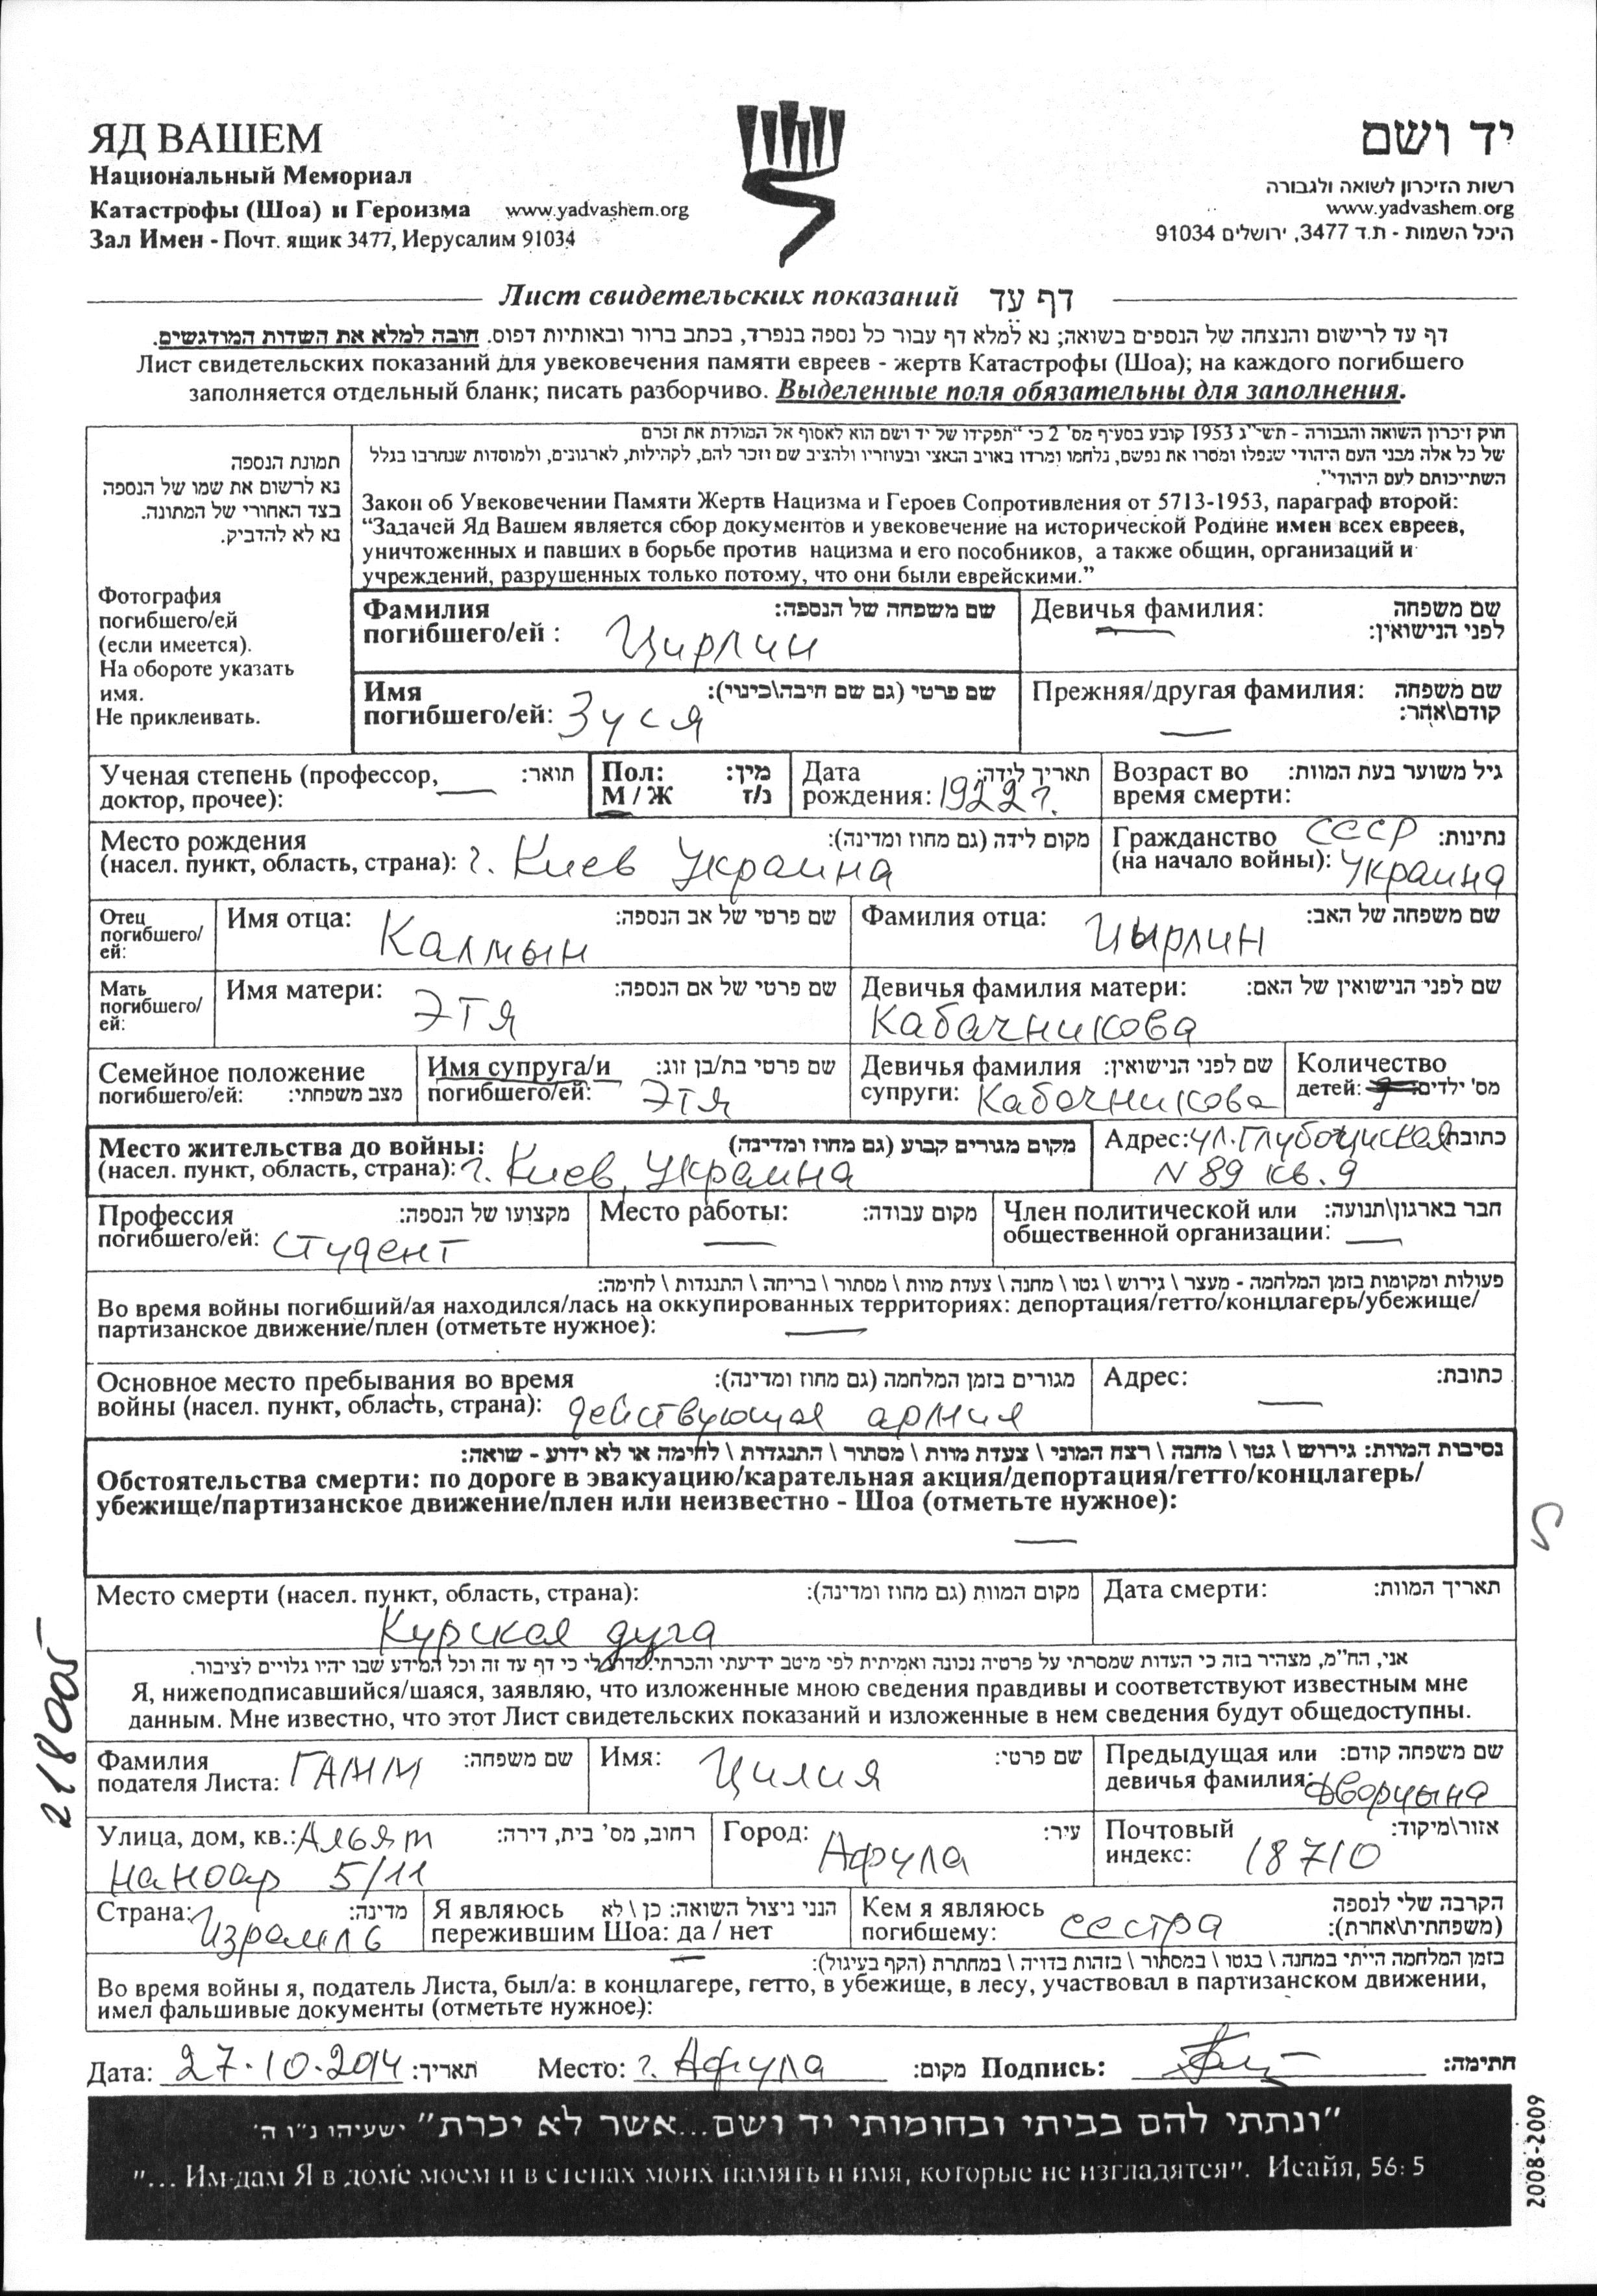 ЯД ВАШЕМ
Национальный Мемориал
Катастрофы (Шоа) и Героизма www.yadvashem.org
Зал Имен - Почт. ящик 3477, Иерусалим 91034
יד ושם
רשות הזיכרון לשואה ולגבורה
www.yadvashem.org
היכל השמות - ת.ד 3477, ירושלים 91034
Лист свидетельских показаний דף עד
דף עד לרישום והנצחה של הנספים בשואה; נא למלא דף עבור כל נספה בנפרד, בכתב ברור ובאותיות דפוס. חובה למלא את השדות המודגשים.
Лист свидетельских показаний для увековечения памяти евреев - жертв Катастрофы (Шоа); на каждого погибшего
заполняется отдельный бланк; писать разборчиво. Выделенные поля обязательны для заполнения.
תמונת הנספה
נא לרשום את שמו של הנספה
בצד האחורי של המתונה.
נא לא להדביק.
Фотография
погибшего/ей
(если имеется).
На обороте указать
имя.
Не приклеивать.
חוק זיכרון השואה והגבורה - תשי"ג 1953 קובע בסעיף מס' 2 כי "תפקידו של יד ושם הוא לאסוף אל המולדת את זכרם
של כל אלה מבני העם היהודי שנפלו ומסרו את נפשם, נלחמו ומרדו באויב הנאצי ובעוזריו ולהציב שם וזכר להם, לקהילות, לארגונים, ולמוסדות שנחרבו בגלל
השתייכותם לעם היהודי".
Закон об Увековечении Памяти Жертв Нацизма и Героев Сопротивления от 5713-1953, параграф второй:
“Задачей Яд Вашем является сбор документов и увековечение на исторической Родине имен всех евреев,
уничтоженных и павших в борьбе против нацизма и его пособников, а также общин, организаций и
учреждений, разрушенных только потому, что они были еврейскими.”
Фамилия שם משפחה של הנספה:
погибшего/ей : Цирлин
Девичья фамилия: שם משפחה
לפני הנישואין:
Имя שם פרטי (גם שם חיבה\כינוי):
погибшего/ей: Зуся
Прежняя/другая фамилия: שם משפחה
קודם\אחר:
Ученая степень (профессор, תואר:
доктор, прочее):
Пол: מין:
М / Ж ז/נ
Дата תאריך לידה:
рождения: 1922 г.
Возраст во גיל משוער בעת המוות:
время смерти:
Место рождения מקום לידה (גם מחוז ומדינה):
(насел. пункт, область, страна): г. Киев Украина
Гражданство СССР נתינות:
(на начало войны): Украина
Отец
погибшего/
ей:
Имя отца: Калмын שם פרטי של אב הנספה:
Фамилия отца: Цырлин שם משפחה של האב:
Мать
погибшего/
ей:
Имя матери: Этя שם פרטי של אם הנספה:
Девичья фамилия матери: שם לפני הנישואין של האם:
Кабачникова
Семейное положение
погибшего/ей: מצב משפחתי:
Имя супруга/и שם פרטי בת/בן זוג:
погибшего/ей: Этя
Девичья фамилия שם לפני הנישואין:
супруги: Кабачникова
Количество
детей: מס' ילדים:
Место жительства до войны: מקום מגורים קבוע (גם מחוז ומדינה)
(насел. пункт, область, страна): г. Киев, Украина
Адрес: ул. Глубочиская כתובת
N 89 кв. 9
Профессия מקצועו של הנספה:
погибшего/ей: студент
Место работы: מקום עבודה:
Член политической или חבר בארגון\תנועה:
общественной организации:
פעולות ומקומות בזמן המלחמה - מעצר \ גירוש \ גטו \ מחנה \ צעדת מוות \ מסתור \ בריחה \ התנגדות \ לחימה:
Во время войны погибший/ая находился/лась на оккупированных территориях: депортация/гетто/концлагерь/убежище/
партизанское движение/плен (отметьте нужное):
Основное место пребывания во время מגורים בזמן המלחמה (גם מחוז ומדינה):
войны (насел. пункт, область, страна): действующая армия
Адрес: כתובת:
נסיבות המוות: גירוש \ גטו \ מחנה \ רצח המוני \ צעדת מוות \ מסתור \ התנגדות \ לחימה או לא ידוע - שואה:
Обстоятельства смерти: по дороге в эвакуацию/карательная акция/депортация/гетто/концлагерь/
убежище/партизанское движение/плен или неизвестно - Шоа (отметьте нужное):
Место смерти (насел. пункт, область, страна): מקום המוות (גם מחוז ומדינה):
Курская дуга
Дата смерти: תאריך המוות:
אני, הח"מ, מצהיר בזה כי העדות שמסרתי על פרטיה נכונה ואמיתית לפי מיטב ידיעתי והכרתי. ידוע לי כי דף עד זה וכל המידע שבו יהיו גלויים לציבור.
Я, нижеподписавшийся/шаяся, заявляю, что изложенные мною сведения правдивы и соответствуют известным мне
данным. Мне известно, что этот Лист свидетельских показаний и изложенные в нем сведения будут общедоступны.
Фамилия שם משפחה:
подателя Листа: ГАММ
Имя: Цилия שם פרטי:
Предыдущая или שם משפחה קודם:
девичья фамилия: Дворцына
Улица, дом, кв.: Альят רחוב, מס' בית, דירה:
Наноар 5/11
Город: Афула עיר:
Почтовый אזור\מיקוד:
индекс: 18710
Страна: Израиль מדינה:
Я являюсь הנני ניצול השואה: כן \ לא
пережившим Шоа: да / нет
Кем я являюсь הקרבה שלי לנספה
погибшему: сестра (משפחתית\אחרת):
בזמן המלחמה הייתי במחנה \ בגטו \ במסתור \ בזהות בדויה \ במחתרת (הקף בעיגול):
Во время войны я, податель Листа, был/а: в концлагере, гетто, в убежище, в лесу, участвовал в партизанском движении,
имел фальшивые документы (отметьте нужное):
Дата: 27.10.2014 תאריך: Место: г. Афула מקום: Подпись: חתימה:
"ונתתי להם בביתי ובחומותי יד ושם...אשר לא יכרת" ישעיהו נ"ו ה'
"... Им дам Я в доме моем и в стенах моих память и имя, которые не изгладятся". Исайя, 56: 5
218005
2008-2009